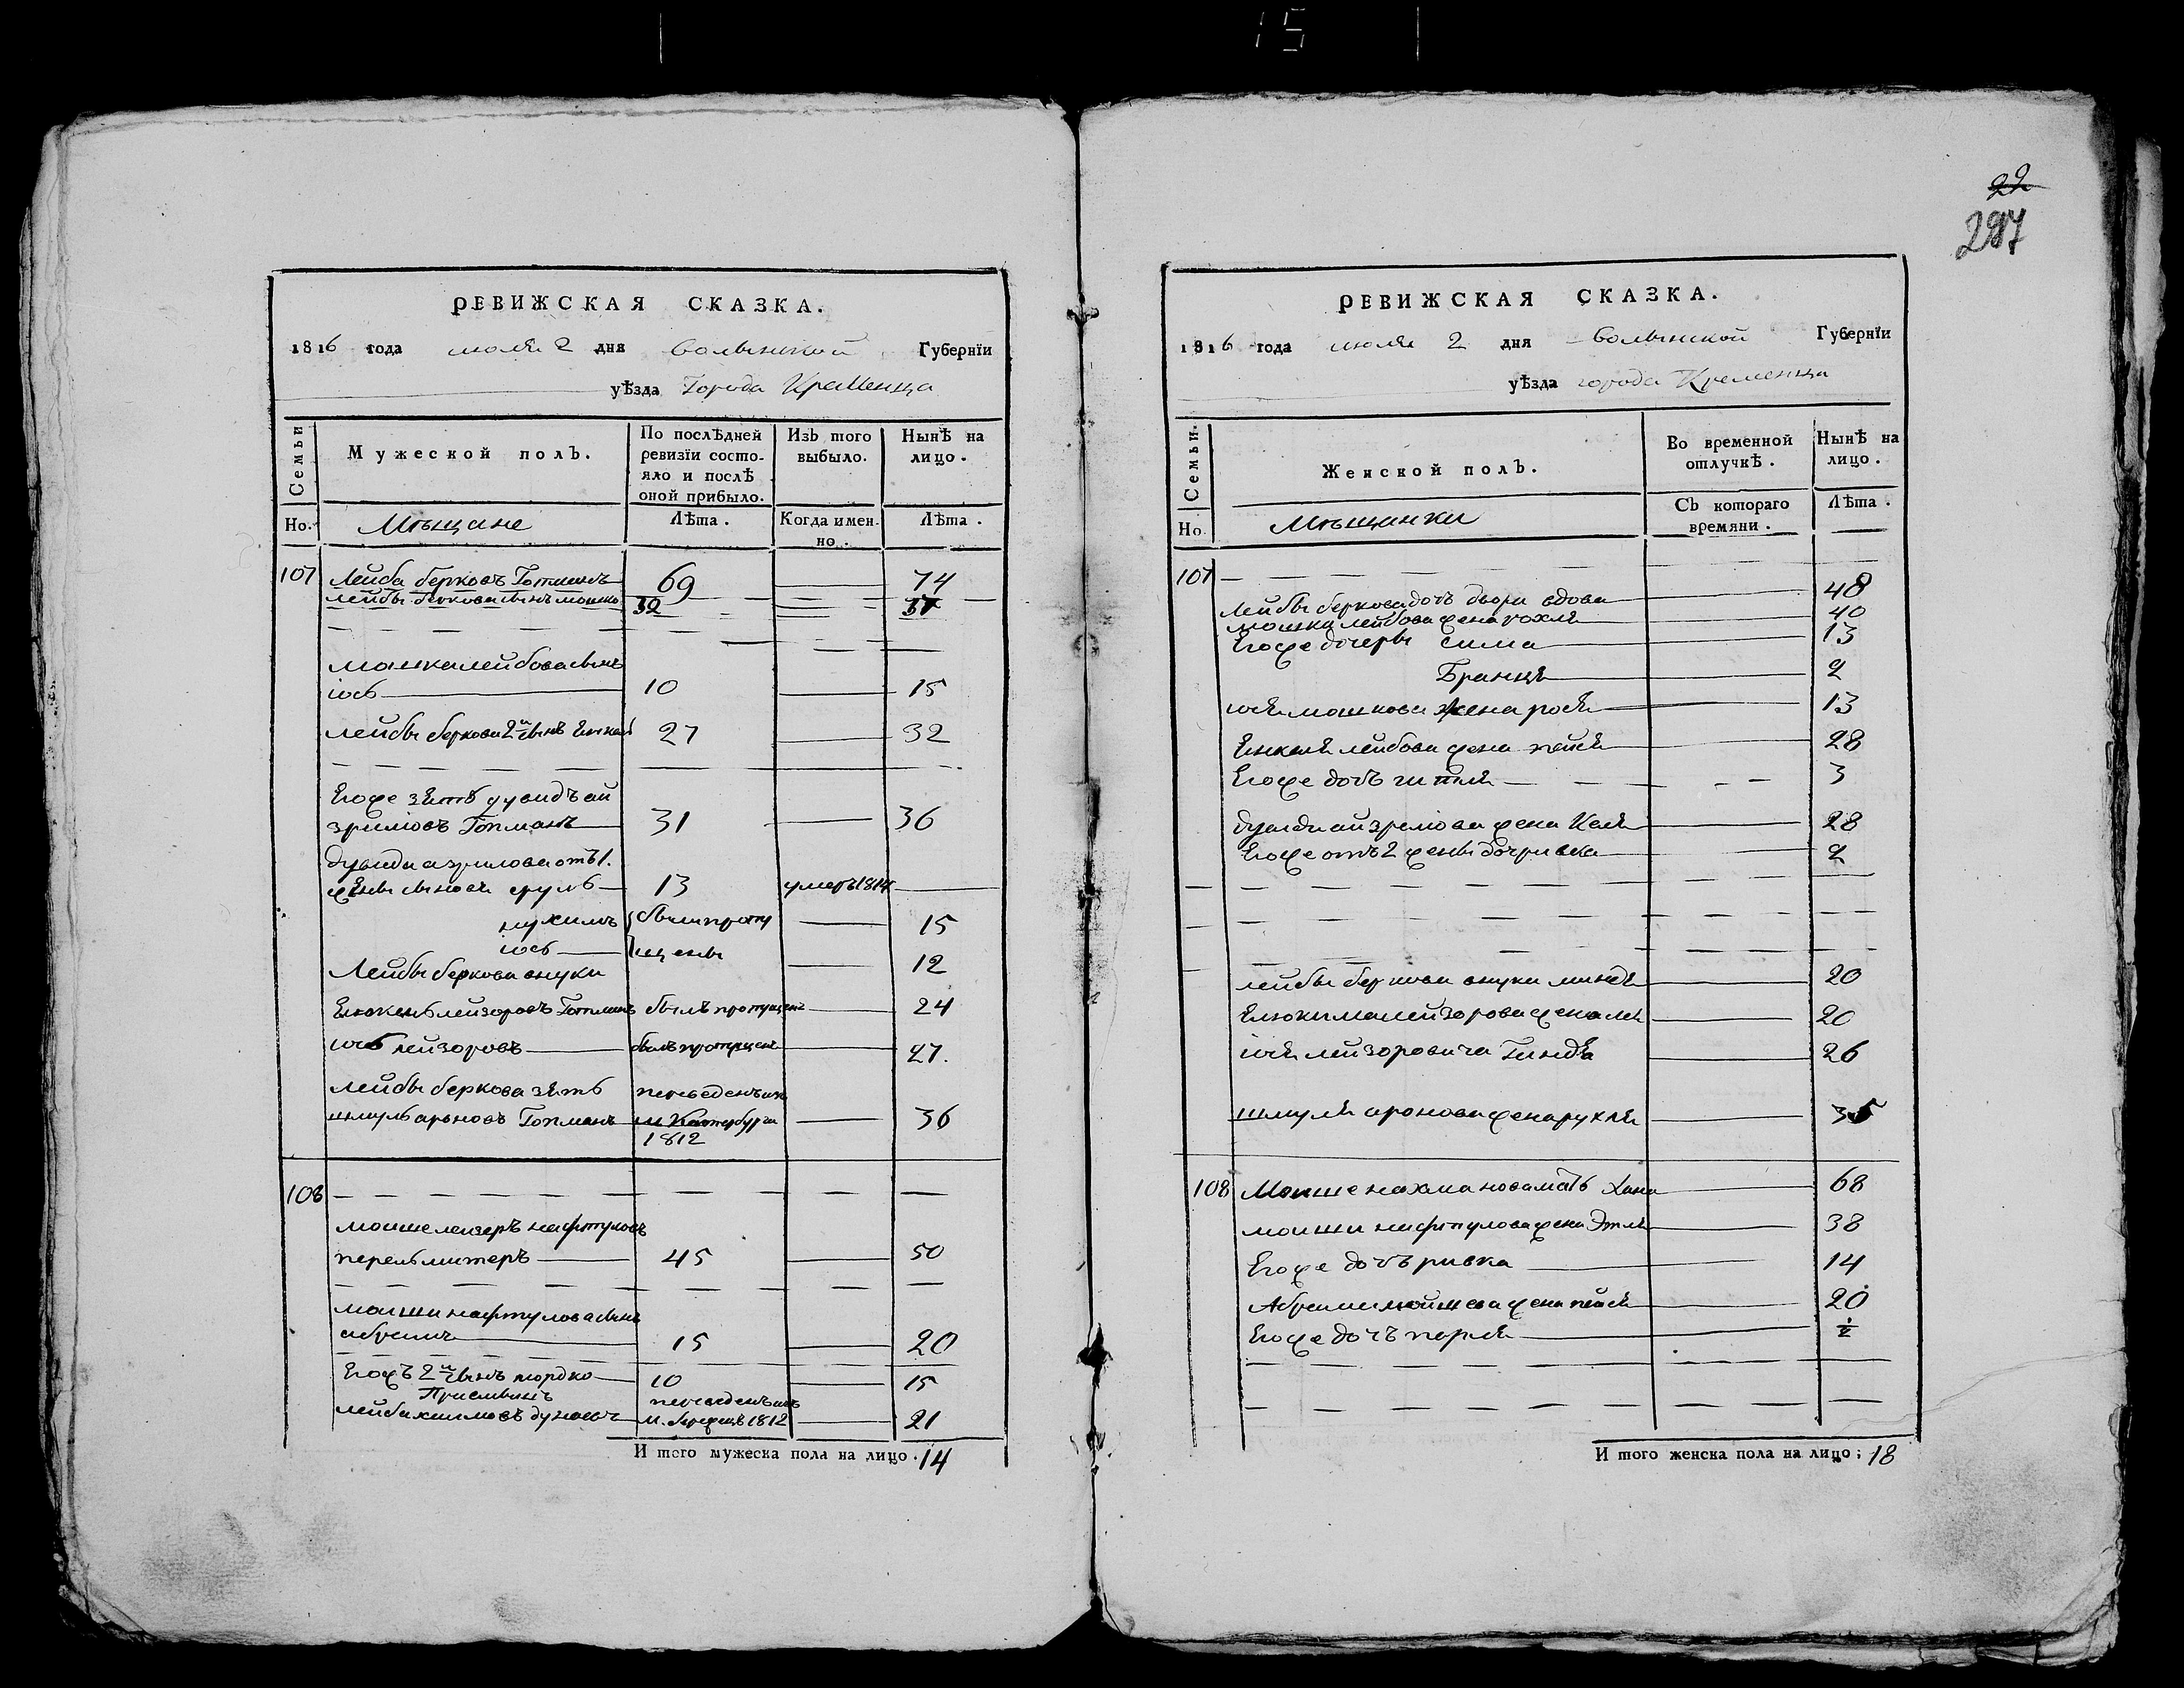 15
РЕВИЖСКАЯ СКАЗКА.
1816 года июля 2 дня волынской Губернїи
уѣзда Города Кременца
Семьи
Мужеской полъ.
По послѣдней ревизїи состояло и послѣ оной прибыло.
Изъ того выбыло.
Нынѣ на лицо.
Но. Мѣщане Лѣта. Когда именно. Лѣта.
107 Лейба берковъ Готманъ 69 74
лейбы беркова сынъ мошко 32 37
мошка лейбова сынъ
иосъ 10 15
лейбы беркова 2й сынъ Енкель 27 32
Егоже зять дувидъ ай
зриловъ Готманъ 31 36
дувида азрилова отъ 1.
жены сыновя сруль 13 умеръ 1814
нухимъ были пропу 15
иосъ щены 12
Лейбы беркова внуки
лейзоровъ Готманъ былъ пропущенъ 24
иосъ лейзоровъ былъ пропущенъ 27.
лейбы беркова зять переведенъ изъ
шмуль арьновъ Готманъ м Катербурга 36
1812
108
моишелейзеръ нафтуловъ
перельмитеръ 45 50
моиши нафтулова сынъ
абрамъ 15 20
Егожъ 2й сынъ мордко 10 15
Приемышъ переведенъ изъ
лейба хаимовъ м. 1812 21
И того мужеска пола на лицо. 14
22
297
РЕВИЖСКАЯ СКАЗКА.
1816 года июля 2 дня волынской Губернїи
уѣзда города Кременца
Семьи.
Женской полъ.
Во временной отлучкѣ.
Нынѣ на лицо.
Но. Мѣщанки Съ котораго времяни. Лѣта.
107
лейбы беркова дочь двора вдова 48
мошка лейбова жена рохля 40
Егоже дочеры сима 13
Бранця 2
иося мошкова жена рося 13
Енкеля лейбова жена пейся 28
Егоже дочь гитля 3
дувида айзрилова жена Келя 28
Егоже отъ 2 жены дочь ривка 2
лейбы беркова внуки миндя 20
лейзорова жена 20
иося лейзоровича Гиндя 26
шмуля аронова жена рухля 35
108 Моише нахманова мать Хана 68
моиши нафтулова жена Этля 38
Егоже дочъ ривка 14
Абрама мойшева жена пейся 20
Егоже дочъ перля ½
И того женска пола на лицо; 18